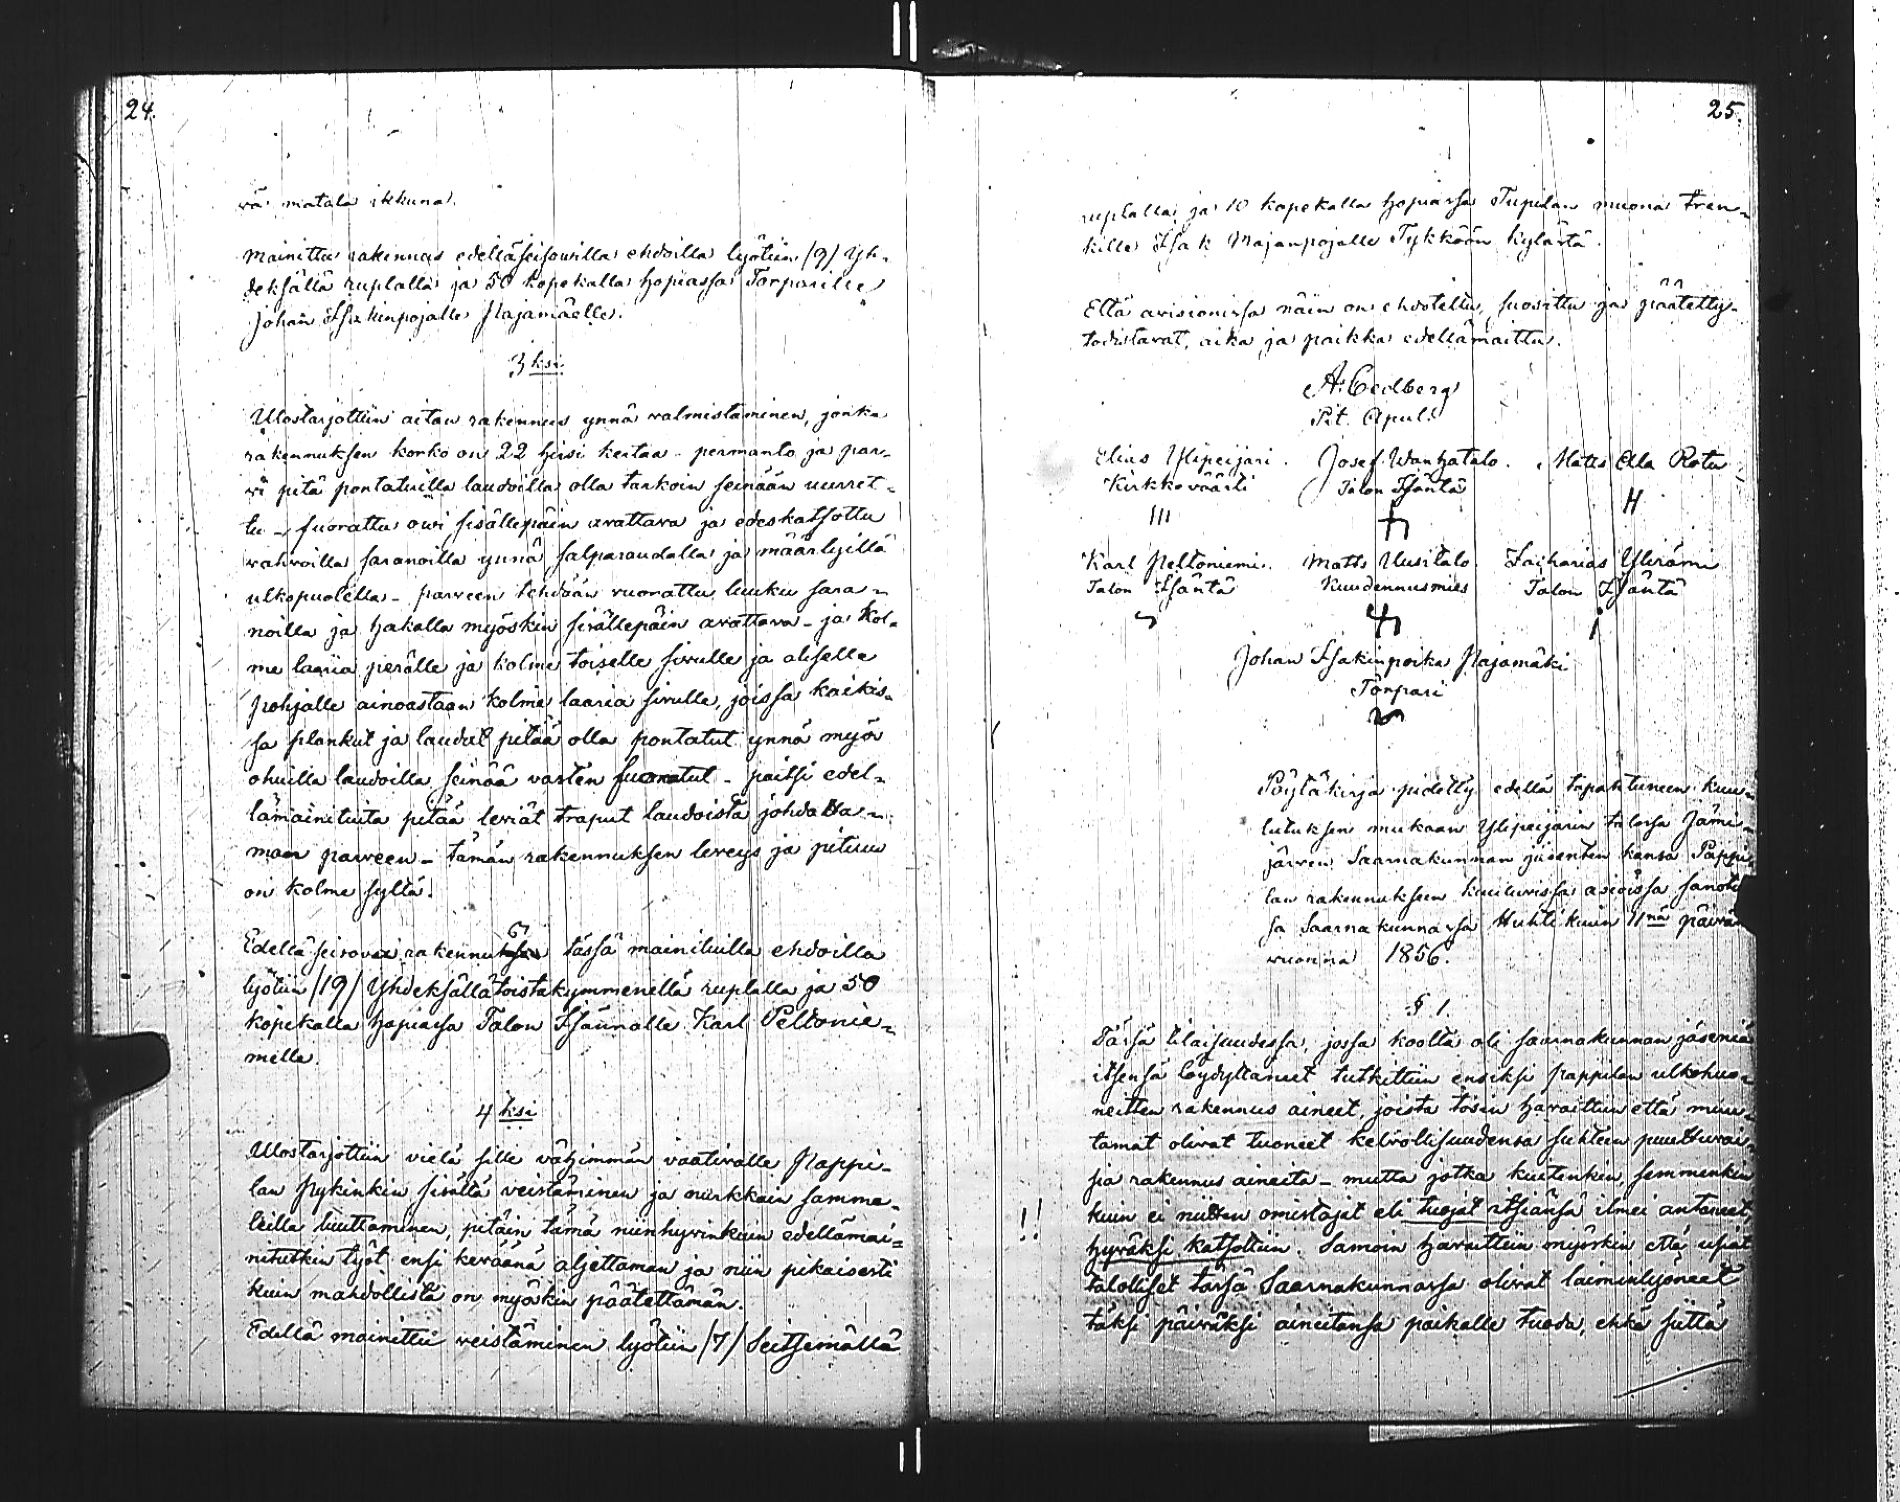 24.
wä matala ikkuna.
Mainittu rakennus edelläseisovilla ehdoilla lyötiin /9/ Yh-
deksällä ruplalla ja 50 kopekalla hopiassa Torparille
Johan Isakinpojalle Pajamäelle.
3ksi
Ulostarjottiin aitan rakennus ynnä valmistaminen, jonka
rakennuksen korko on 22 hirsi kertaa - permanto ja par-
vi pitä pontatuilla laudoilla olla tarkoin seinään uurret-
tu - suorattu owi sisällepäin avattava ja edeskatsottu
vahvoilla saranoilla ynnä salparaudalla ja määrlyillä
ulkopuolella - parveen tehdään vuorattu luuku sara-
noilla ja hakalla myöskin sisällepäin avattava - ja kol-
me laaria perälle ja kolme toiselle sivulle ja aliselle
pohjalle ainoastaan kolme laaria sivulle, joissa kaikis-
sa plankut ja laudat pitää olla pontatut ynnä myös
ohuilla laudoilla seinää vasten suoratut - paitsi edel-
lämainituita pitää leviät traput laudoista johdatta-
maan parveen - tämän rakennuksen leveys ja pituus
on kolme syltä.
Edellä seisova rakennus tässä mainituilla ehdoilla
lyötiin /19/ Yhdeksällätoistakymmenellä ruplalla ja 50
kopekalla hopiassa Talon Isännälle Karl Peltonie-
melle.
4ksi
Ulostarjottiin vielä sille vähimmän vaativalle Pappi-
lan Pykinkin sisältä veistäminen ja nurkkain samma-
leilla tuuttaminen, pitäin tämä niinhyvinkuin edellämai-
nitutkin työt ensi keväänä aljettaman ja niin pikaisesti
kuin mahdollista on myöskin päätettämän.
Edellä mainittu veistäminen lyötiin /7/ Seitsemällä
25.
ruplalla ja 10 kopekalla hopiassa Pupilan muona tren-
kille Isak Majanpojalle Tykköön kylästä.
Että avisionissa näin on ehdoteltu, suosittu ja päätetty
todistavat, aika ja paikka edellämaittu.
A: Cedberg
Pit. Apul:
Elias Ylipeijari. Josef Wanhatalo. Matts Ella Rotu
Kirkkoväärti Talon Isäntä H
III
Karl Peltoniemi. Matts Uusitalo. Zacharias Ylirämi
Talon Isäntä Kuudennusmies Talon Isäntä
Johan Isakinpoika Pajamäki
Torpari
Pöytäkirja pidetty edellä tapahtuneen kuu-
lutuksen mukaan Ylipeijarin talossa Jämi-
järven Saarnakunnan jäsenten kansa Pappi-
lan rakennukseen kuuluvissa asioissa sanotu
sa Saarnakunnassa Huhtikuun 11nä päivän
vuonna 1856.
§ 1.
Tässä tilaisuudessa, jossa koolla oli saarnakunnan jäseniä
itsensä löydyttäneet tutkittiin ensiksi pappilan ulkohuo-
neitten rakennus aineet, joista tosin havaittiin että muu-
tamat olivat tuoneet kelvollisuudensa suhteen puuttuvai-
sia rakennus aineita - mutta jotka kuitenkin semmenkin
!! kuin ei niitten omistajat eli tuojat itseänsä ilmei antaneet
hyväksi katsottiin. Samoin havaittiin myöskin että usiat
talolliset tässä Saarnakunnassa olivat laiminlyöneet
täksi päiväksi aineitansa paikalle tuoda, ehkä siitä